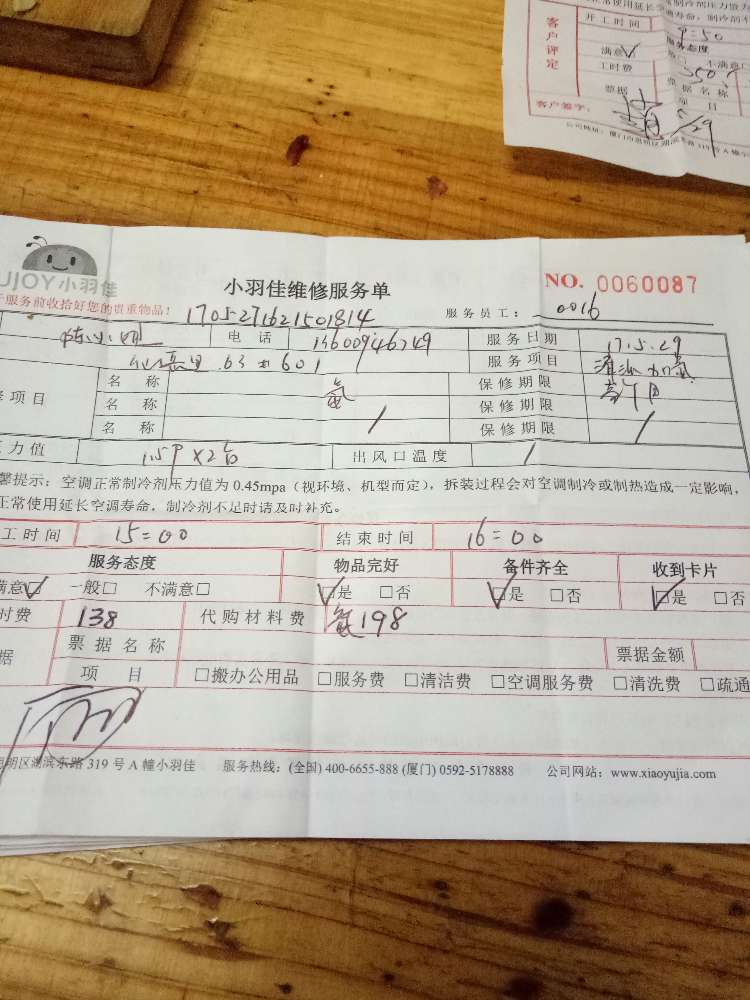 制冷剂压力值为
常使用延长空调寿命，制冷剂不
客户评定
开工时间
服务态度
满意 不满意□
工时费 550
票据 票据名称
项目
客户签字： 5/29
公司地址：厦门市思明区湖滨东路319号A幢小
UJOY小羽佳
小羽佳维修服务单
NO. 0060087
于服务前收拾好您的贵重物品！
1705271621501814
服务员工： 0016
电话 13600946749 服务日期 17.5.29
63 601 服务项目 清洗加氨
修项目 名称 氨 保修期限
名称 保修期限
名称 / 保修期限 /
压力值 1.5P×2台 出风口温度 /
馨提示：空调正常制冷剂压力值为0.45mpa（视环境、机型而定），拆装过程会对空调制冷或制热造成一定影响，
正常使用延长空调寿命，制冷剂不足时请及时补充。
工时间 15=00 结束时间 16=00
服务态度 物品完好 备件齐全 收到卡片
满意□ 一般□ 不满意□ □是 □否 □是 □否 □是 □否
付费 138 代购材料费 氨198
据 票据名称 票据金额
项目 □搬办公用品 □服务费 □清洁费 □空调服务费 □清洗费 □疏通
思明区湖滨东路319号A幢小羽佳 服务热线：(全国) 400-6655-888 (厦门) 0592-5178888 公司网站：www.xiaoyujia.com